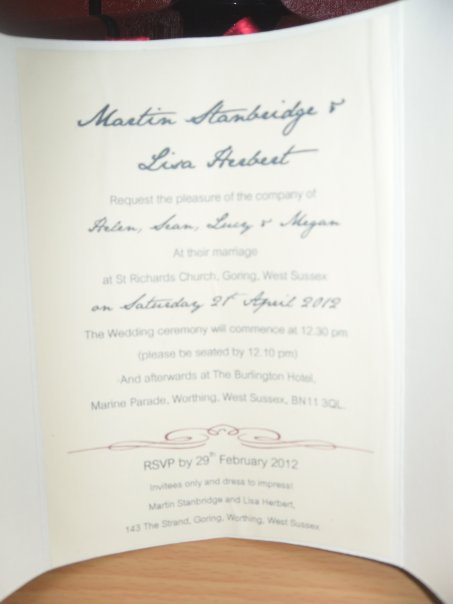 Martin Stanbridge &
Lisa Herbert
Request the pleasure of the company of
Helen, Sean, Lucy & Megan
At their marriage
at St Richards Church, Goring, West Sussex
on Saturday 21st April 2012
The Wedding ceremony will commence at 12.30 pm
(please be seated by 12.10 pm)
And afterwards at The Burlington Hotel,
Marine Parade, Worthing, West Sussex, BN11 3QL.
RSVP by 29th February 2012
Invitees only and dress to impress!
Martin Stanbridge and Lisa Herbert,
143 The Strand, Goring, Worthing, West Sussex